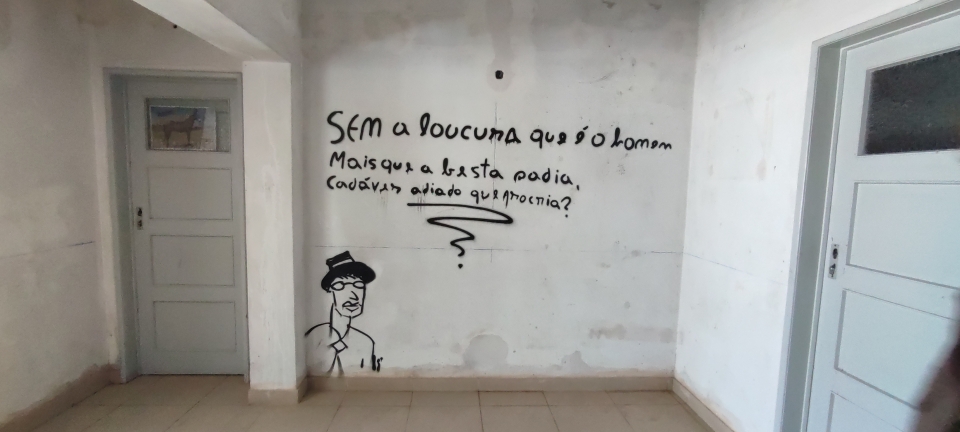 SEM a loucura que é o homem
Mais que a besta sadia,
Cadáver adiado que procria?